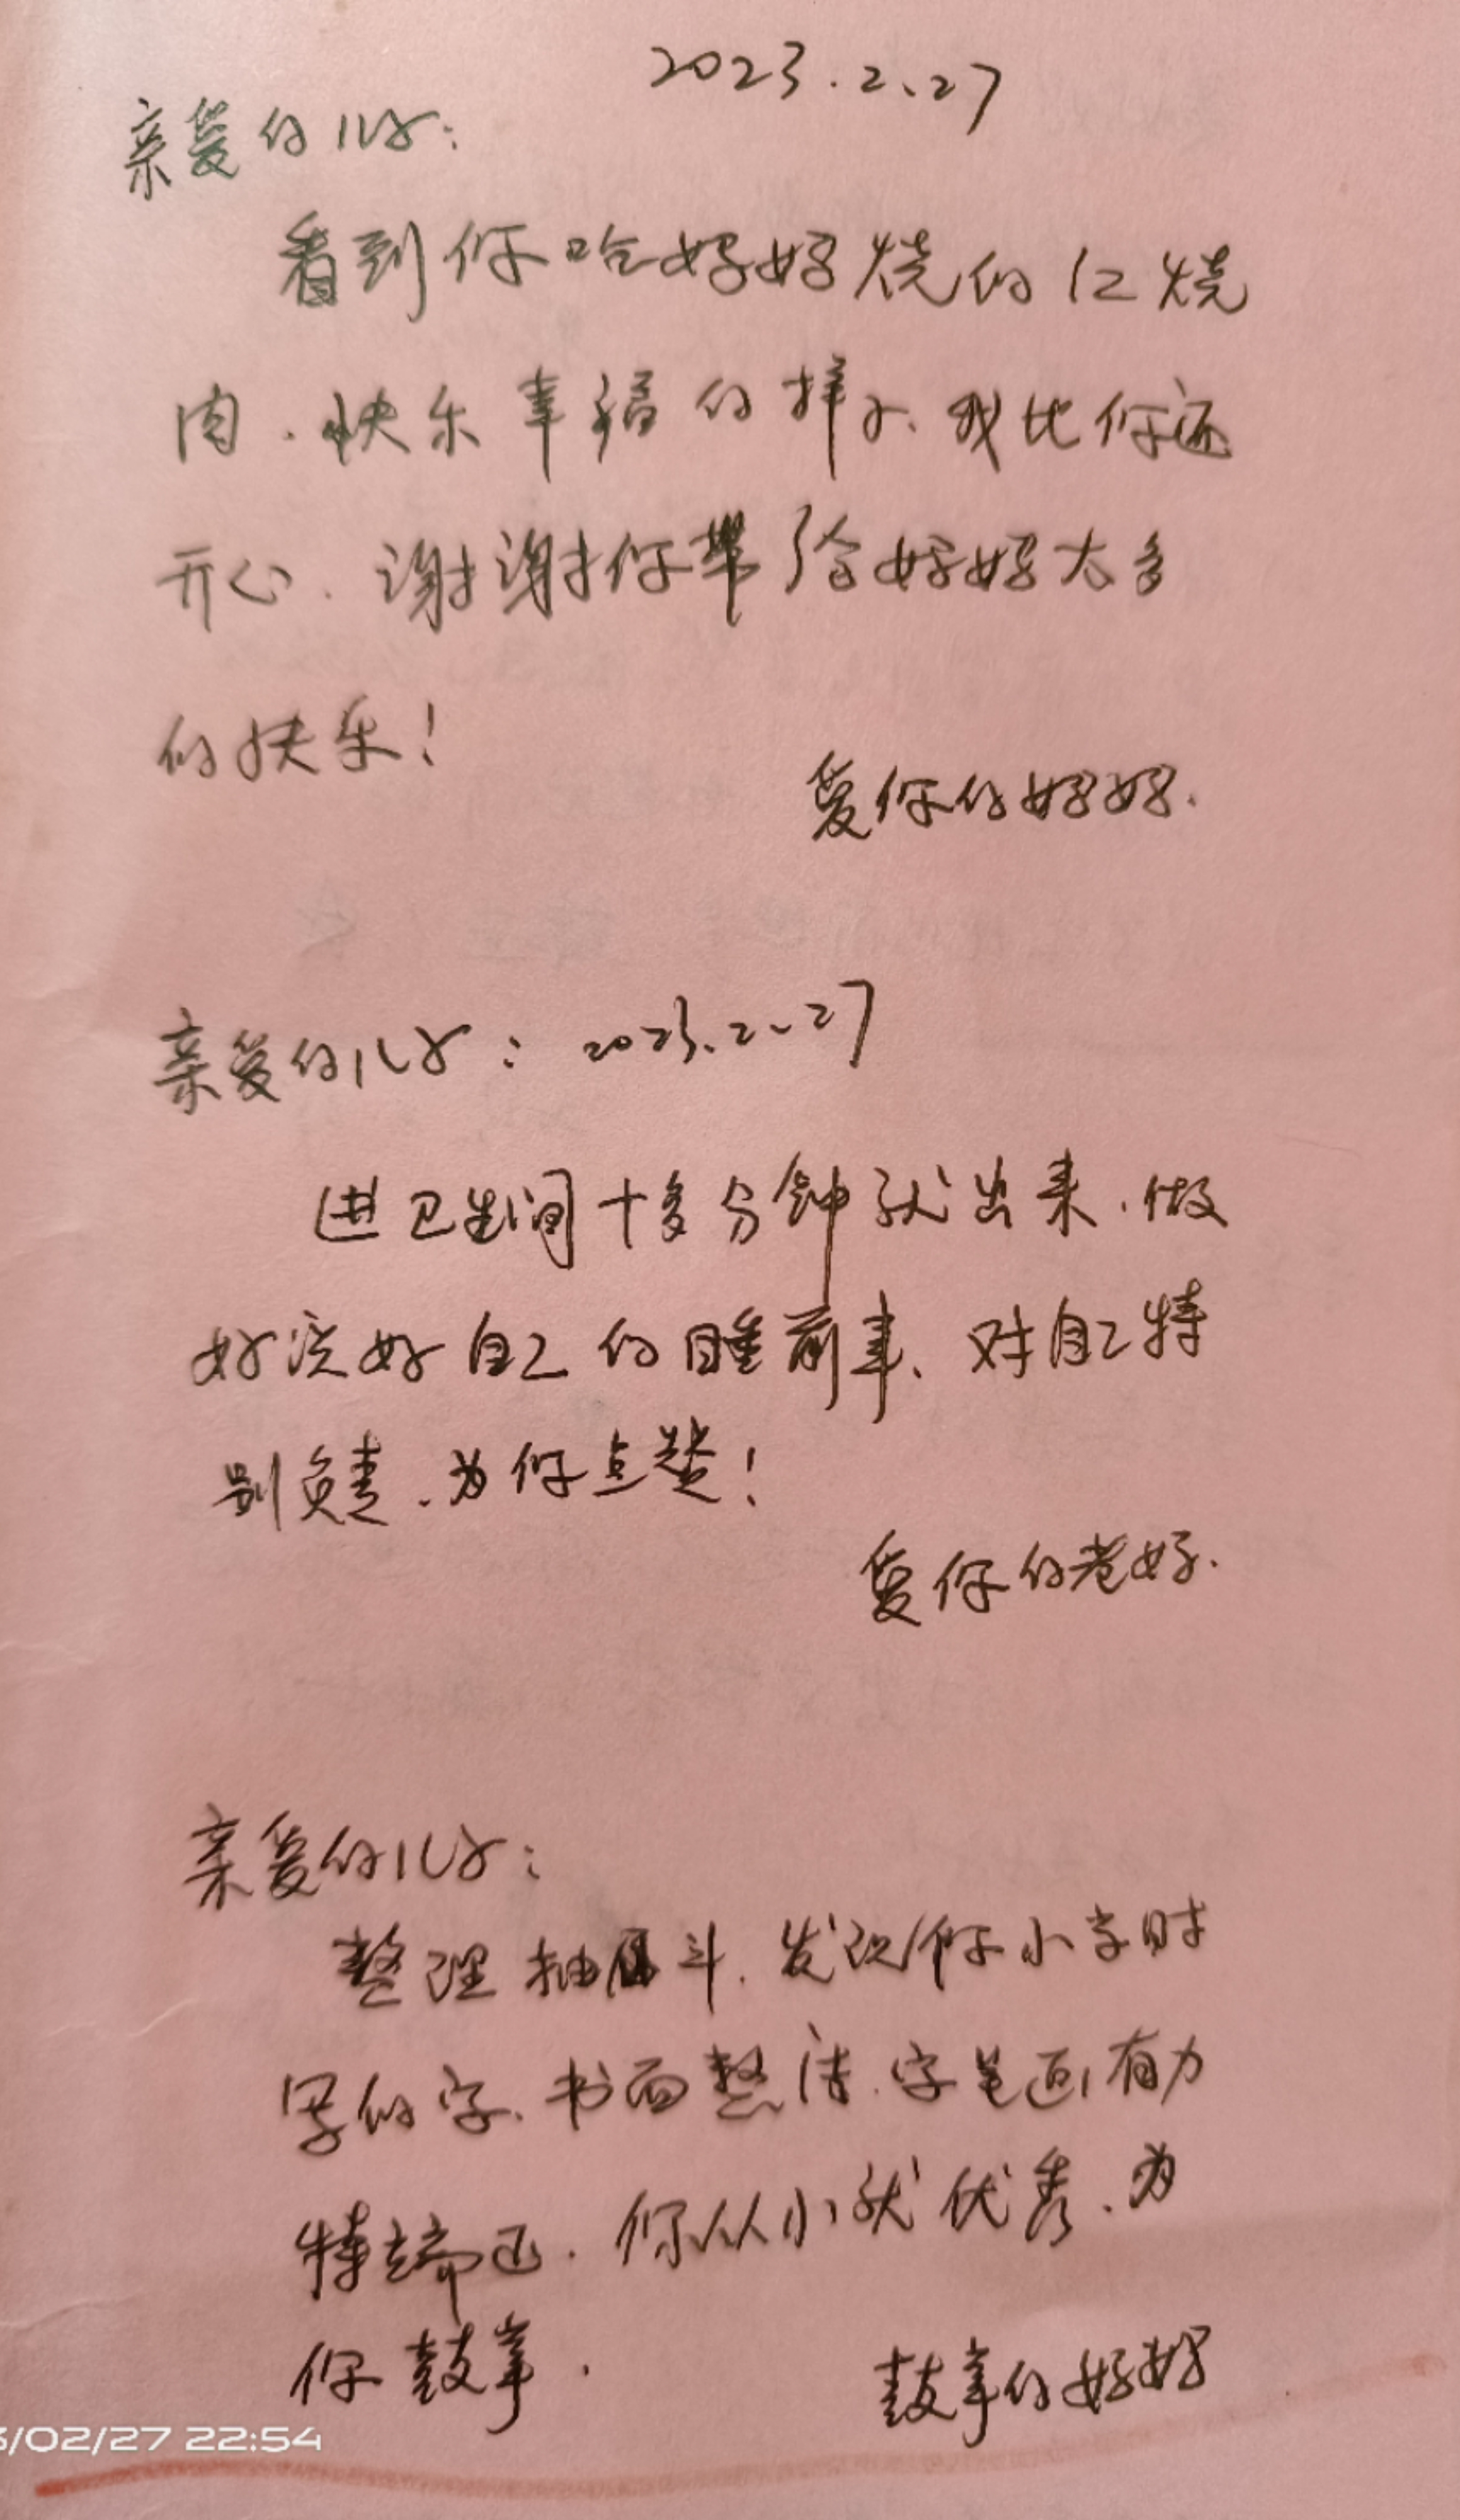 2023.2.27
亲爱的儿子:
看到你吃妈妈烧的红烧
肉.快乐幸福的样子、我比你还
开心.谢谢你带给妈妈太多
的快乐!
爱你的妈妈.
亲爱的儿子:2023.2.27
进卫生间十多分钟就出来.做
好洗好自己的睡前事、对自己特
别负责.为你点赞!
爱你的老妈.
亲爱的儿子:
整理抽屉斗.发现你小学时
写的字、书面整洁.字笔画有力
特端正.你从小就优秀.为
你鼓掌.
鼓掌的妈妈
3/02/27 22:54